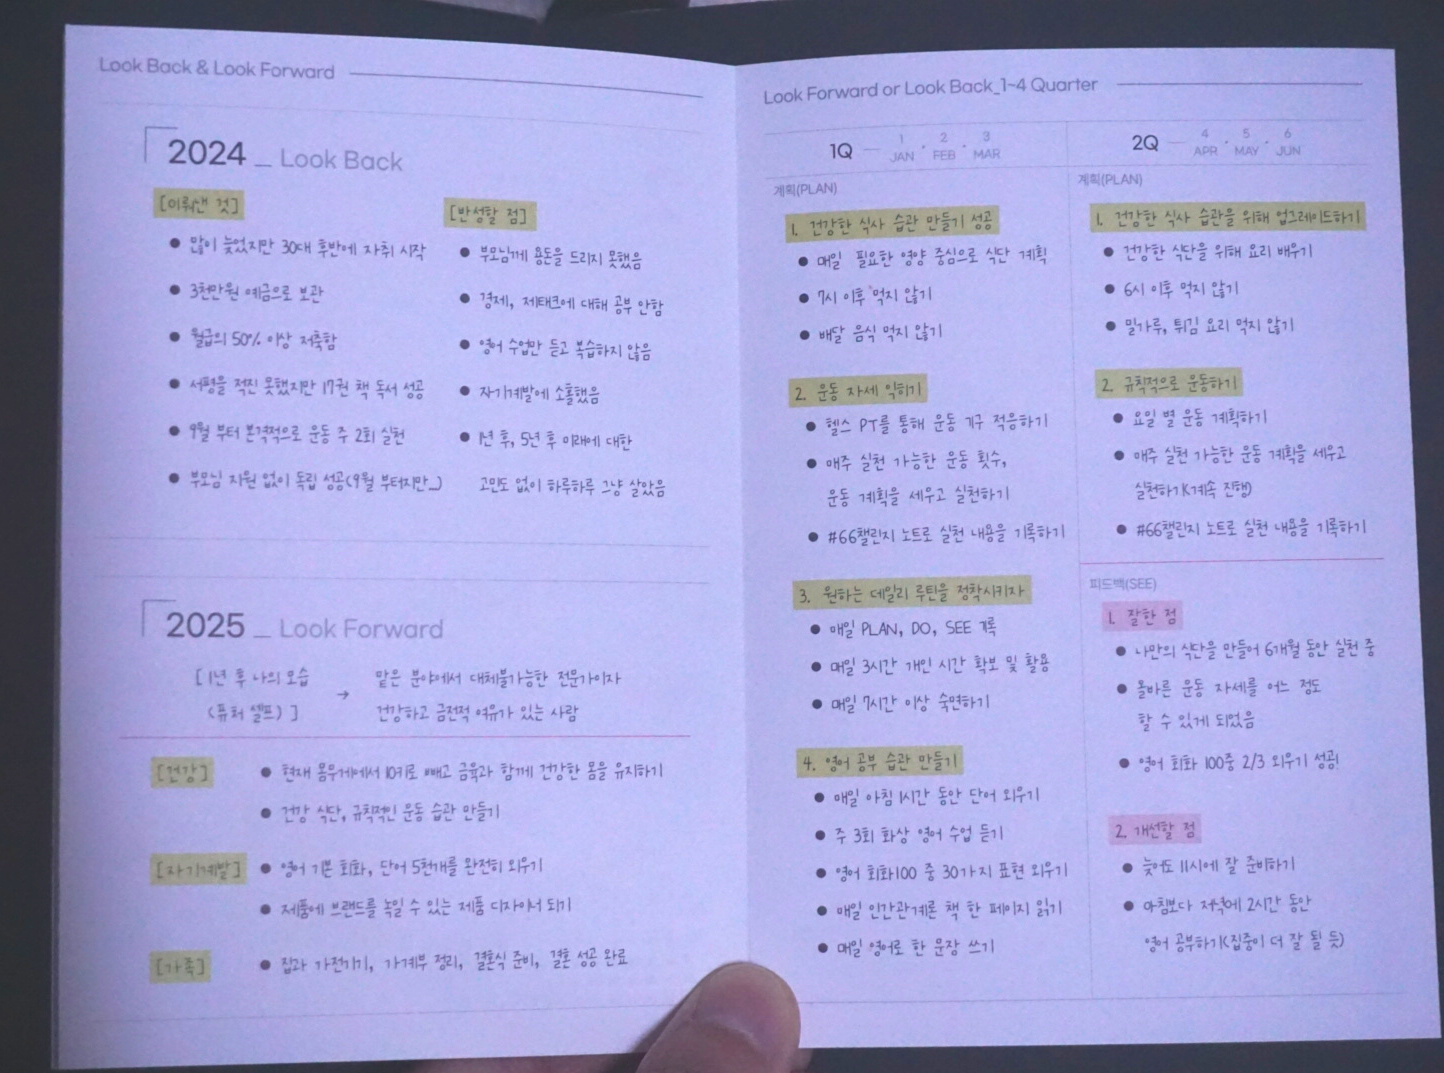 Look Back & Look Forward
2024 _ Look Back
[이뤄낸 것]
● 많이 늦었지만 30대 후반에 자취 시작
● 3천만원 예금으로 보관
● 월급의 50% 이상 저축함
● 서평을 적진 못했지만 17권 책 독서 성공
● 9월 부터 본격적으로 운동 주 2회 실천
● 부모님 지원 없이 독립 성공(9월 부터지만_)
[반성할 점]
● 부모님께 용돈을 드리지 못했음
● 경제, 제태크에 대해 공부 안함
● 영어 수업만 듣고 복습하지 않음
● 자기계발에 소홀했음
● 1년 후, 5년 후 미래에 대한
고민도 없이 하루하루 그냥 살았음
2025 _ Look Forward
[1년 후 나의 모습
(퓨처 셀프)]
→
맡은 분야에서 대체불가능한 전문가이자
건강하고 금전적 여유가 있는 사람
[건강]
● 현재 몸무게에서 10키로 빼고 근육과 함께 건강한 몸을 유지하기
● 건강 식단, 규칙적인 운동 습관 만들기
[자기계발]
● 영어 기본 회화, 단어 5천개를 완전히 외우기
● 제품에 브랜드를 녹일 수 있는 제품 디자이너 되기
[가족]
● 집과 가전기기, 가계부 정리, 결혼식 준비, 결혼 성공 완료
Look Forward or Look Back_1~4 Quarter
1Q — 1 JAN · 2 FEB · 3 MAR
계획(PLAN)
1. 건강한 식사 습관 만들기 성공
● 매일 필요한 영양 중심으로 식단 계획
● 7시 이후 먹지 않기
● 배달 음식 먹지 않기
2. 운동 자세 익히기
● 헬스 PT를 통해 운동 기구 적응하기
● 매주 실천 가능한 운동 횟수,
운동 계획을 세우고 실천하기
● #66챌린지 노트로 실천 내용을 기록하기
3. 원하는 데일리 루틴을 정착시키자
● 매일 PLAN, DO, SEE 기록
● 매일 3시간 개인 시간 확보 및 활용
● 매일 7시간 이상 숙면하기
4. 영어 공부 습관 만들기
● 매일 아침 1시간 동안 단어 외우기
● 주 3회 화상 영어 수업 듣기
● 영어 회화100 중 30가지 표현 외우기
● 매일 인간관계론 책 한 페이지 읽기
● 매일 영어로 한 문장 쓰기
2Q — 4 APR · 5 MAY · 6 JUN
계획(PLAN)
1. 건강한 식사 습관을 위해 업그레이드하기
● 건강한 식단을 위해 요리 배우기
● 6시 이후 먹지 않기
● 밀가루, 튀김 요리 먹지 않기
2. 규칙적으로 운동하기
● 요일 별 운동 계획하기
● 매주 실천 가능한 운동 계획을 세우고
실천하기(계속 진행)
● #66챌린지 노트로 실천 내용을 기록하기
피드백(SEE)
1. 잘한 점
● 나만의 식단을 만들어 6개월 동안 실천 중
● 올바른 운동 자세를 어느 정도
할 수 있게 되었음
● 영어 회화 100중 2/3 외우기 성공!
2. 개선할 점
● 늦어도 11시에 잘 준비하기
● 아침보다 저녁에 2시간 동안
영어 공부하기(집중이 더 잘 될 듯)